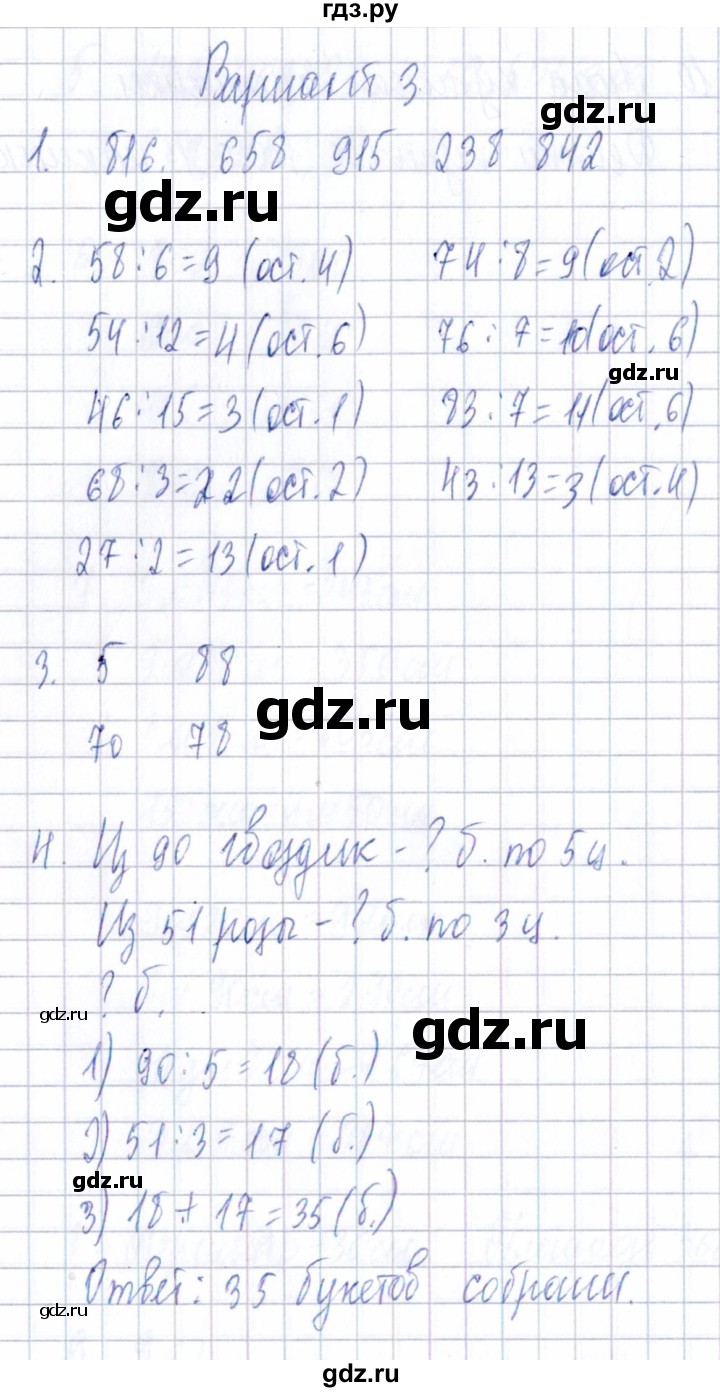 гдз.ру
Вариант 3
gdz.ru
1. 816. 658 915 238 842
gdz.ru
2. 58:6=9 (ост. 4) 74:8=9 (ост. 2)
54:12=4 (ост. 6) 76:7=10 (ост. 6)
gdz.ru
46:15=3 (ост. 1) 83:7=11 (ост. 6)
68:3=22 (ост. 2) 43:13=3 (ост. 4)
27:2=13 (ост. 1)
3. 5 88
gdz.ru
70 78
4. Из 90 гвоздик - ? б. по 5 ц.
Из 51 розы - ? б. по 3 ц.
? б.
gdz.ru
gdz.ru
1) 90:5=18 (б.)
2) 51:3=17 (б.)
gdz.ru
3) 18+17=35 (б.)
Ответ: 35 букетов собрали.
gdz.ru
gdz.ru
gdz.ru